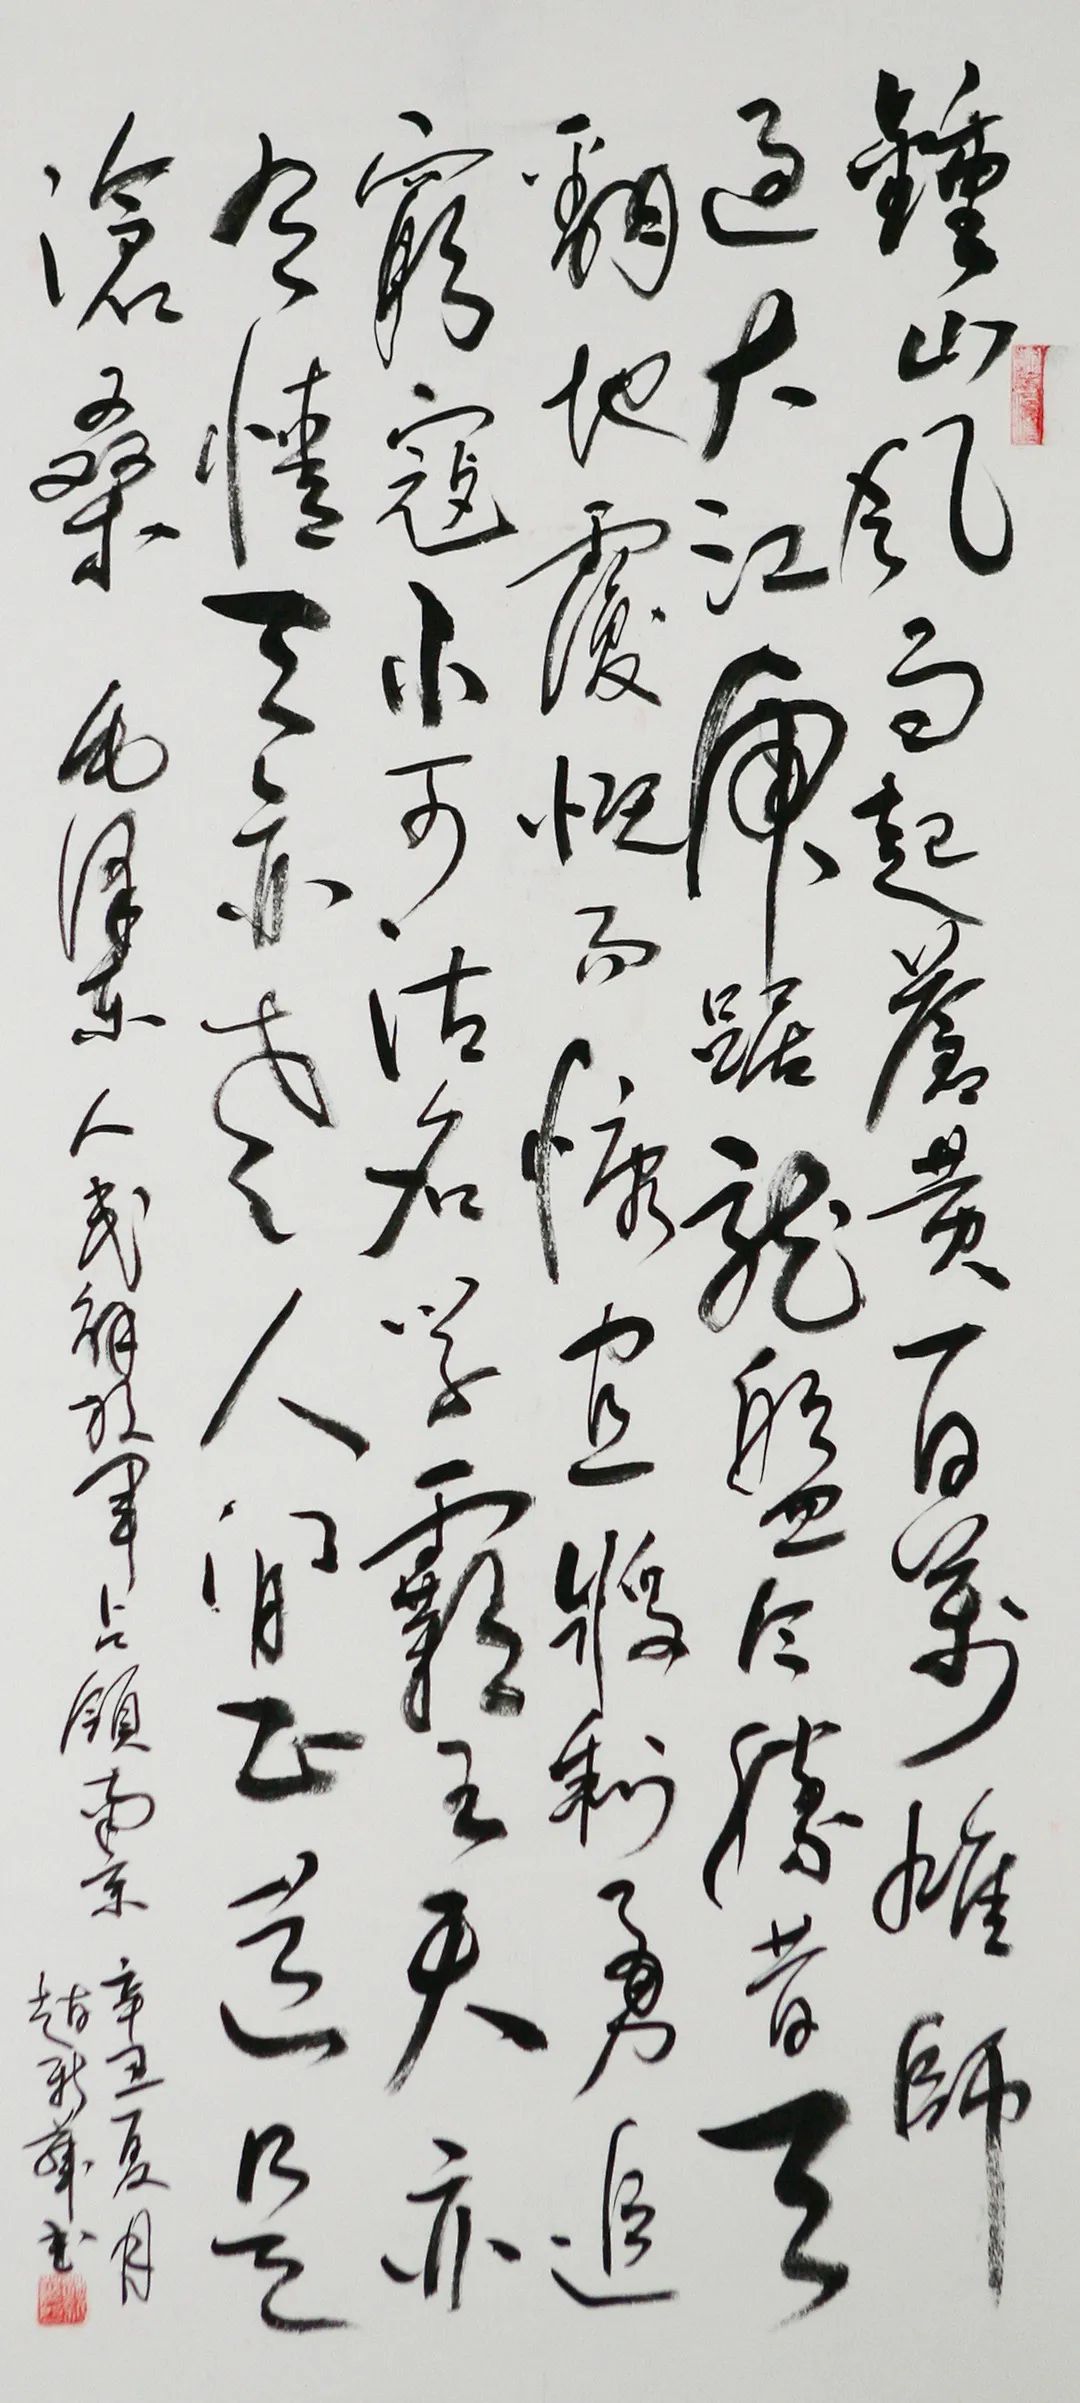 鍾山風雨起蒼黃百萬雄師
過大江虎踞龍盤今勝昔天
翻地覆慨而慷宜將剩勇追
窮寇不可沽名學霸王天亦
有情天亦老人間正道是
滄桑 毛澤東 人民解放軍占領南京 辛丑夏月
趙新華書